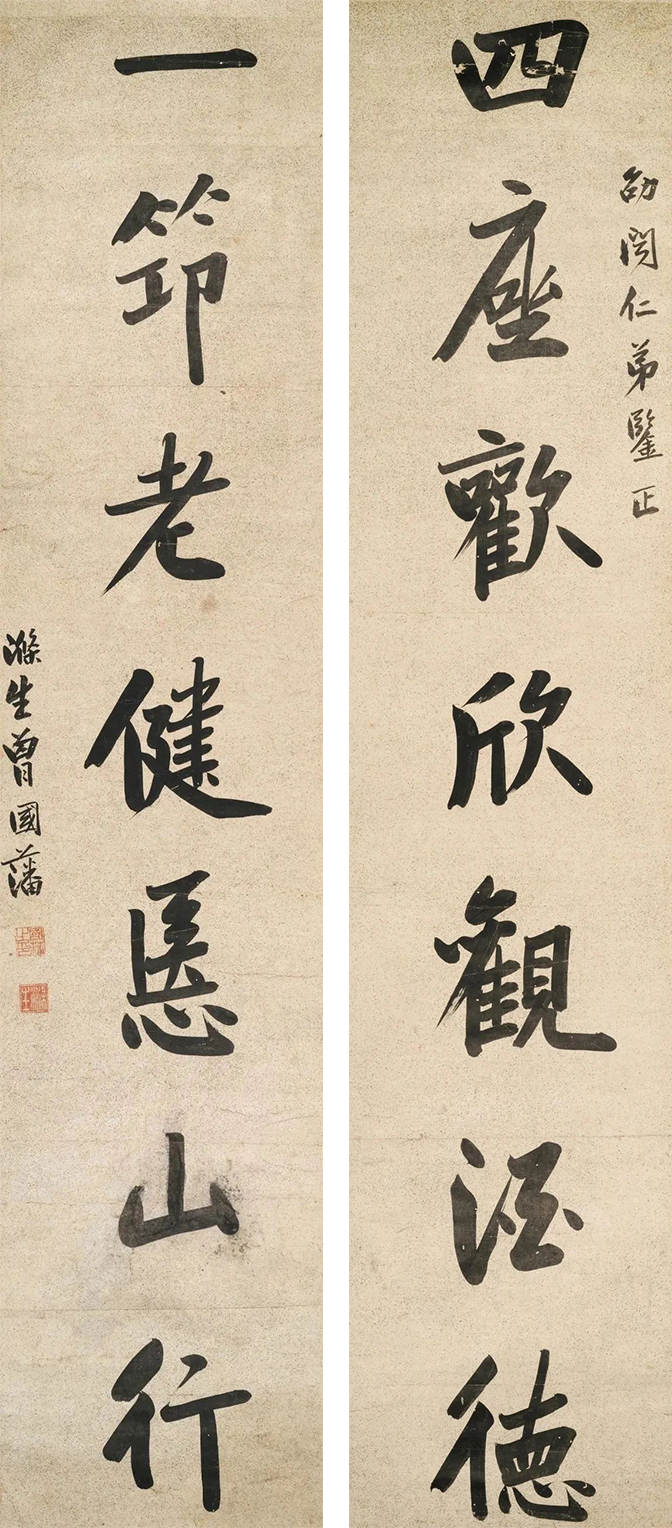 四座歡欣觀酒德
劭仁弟鑒正
一筇老健㥦山行
滌生曾國藩